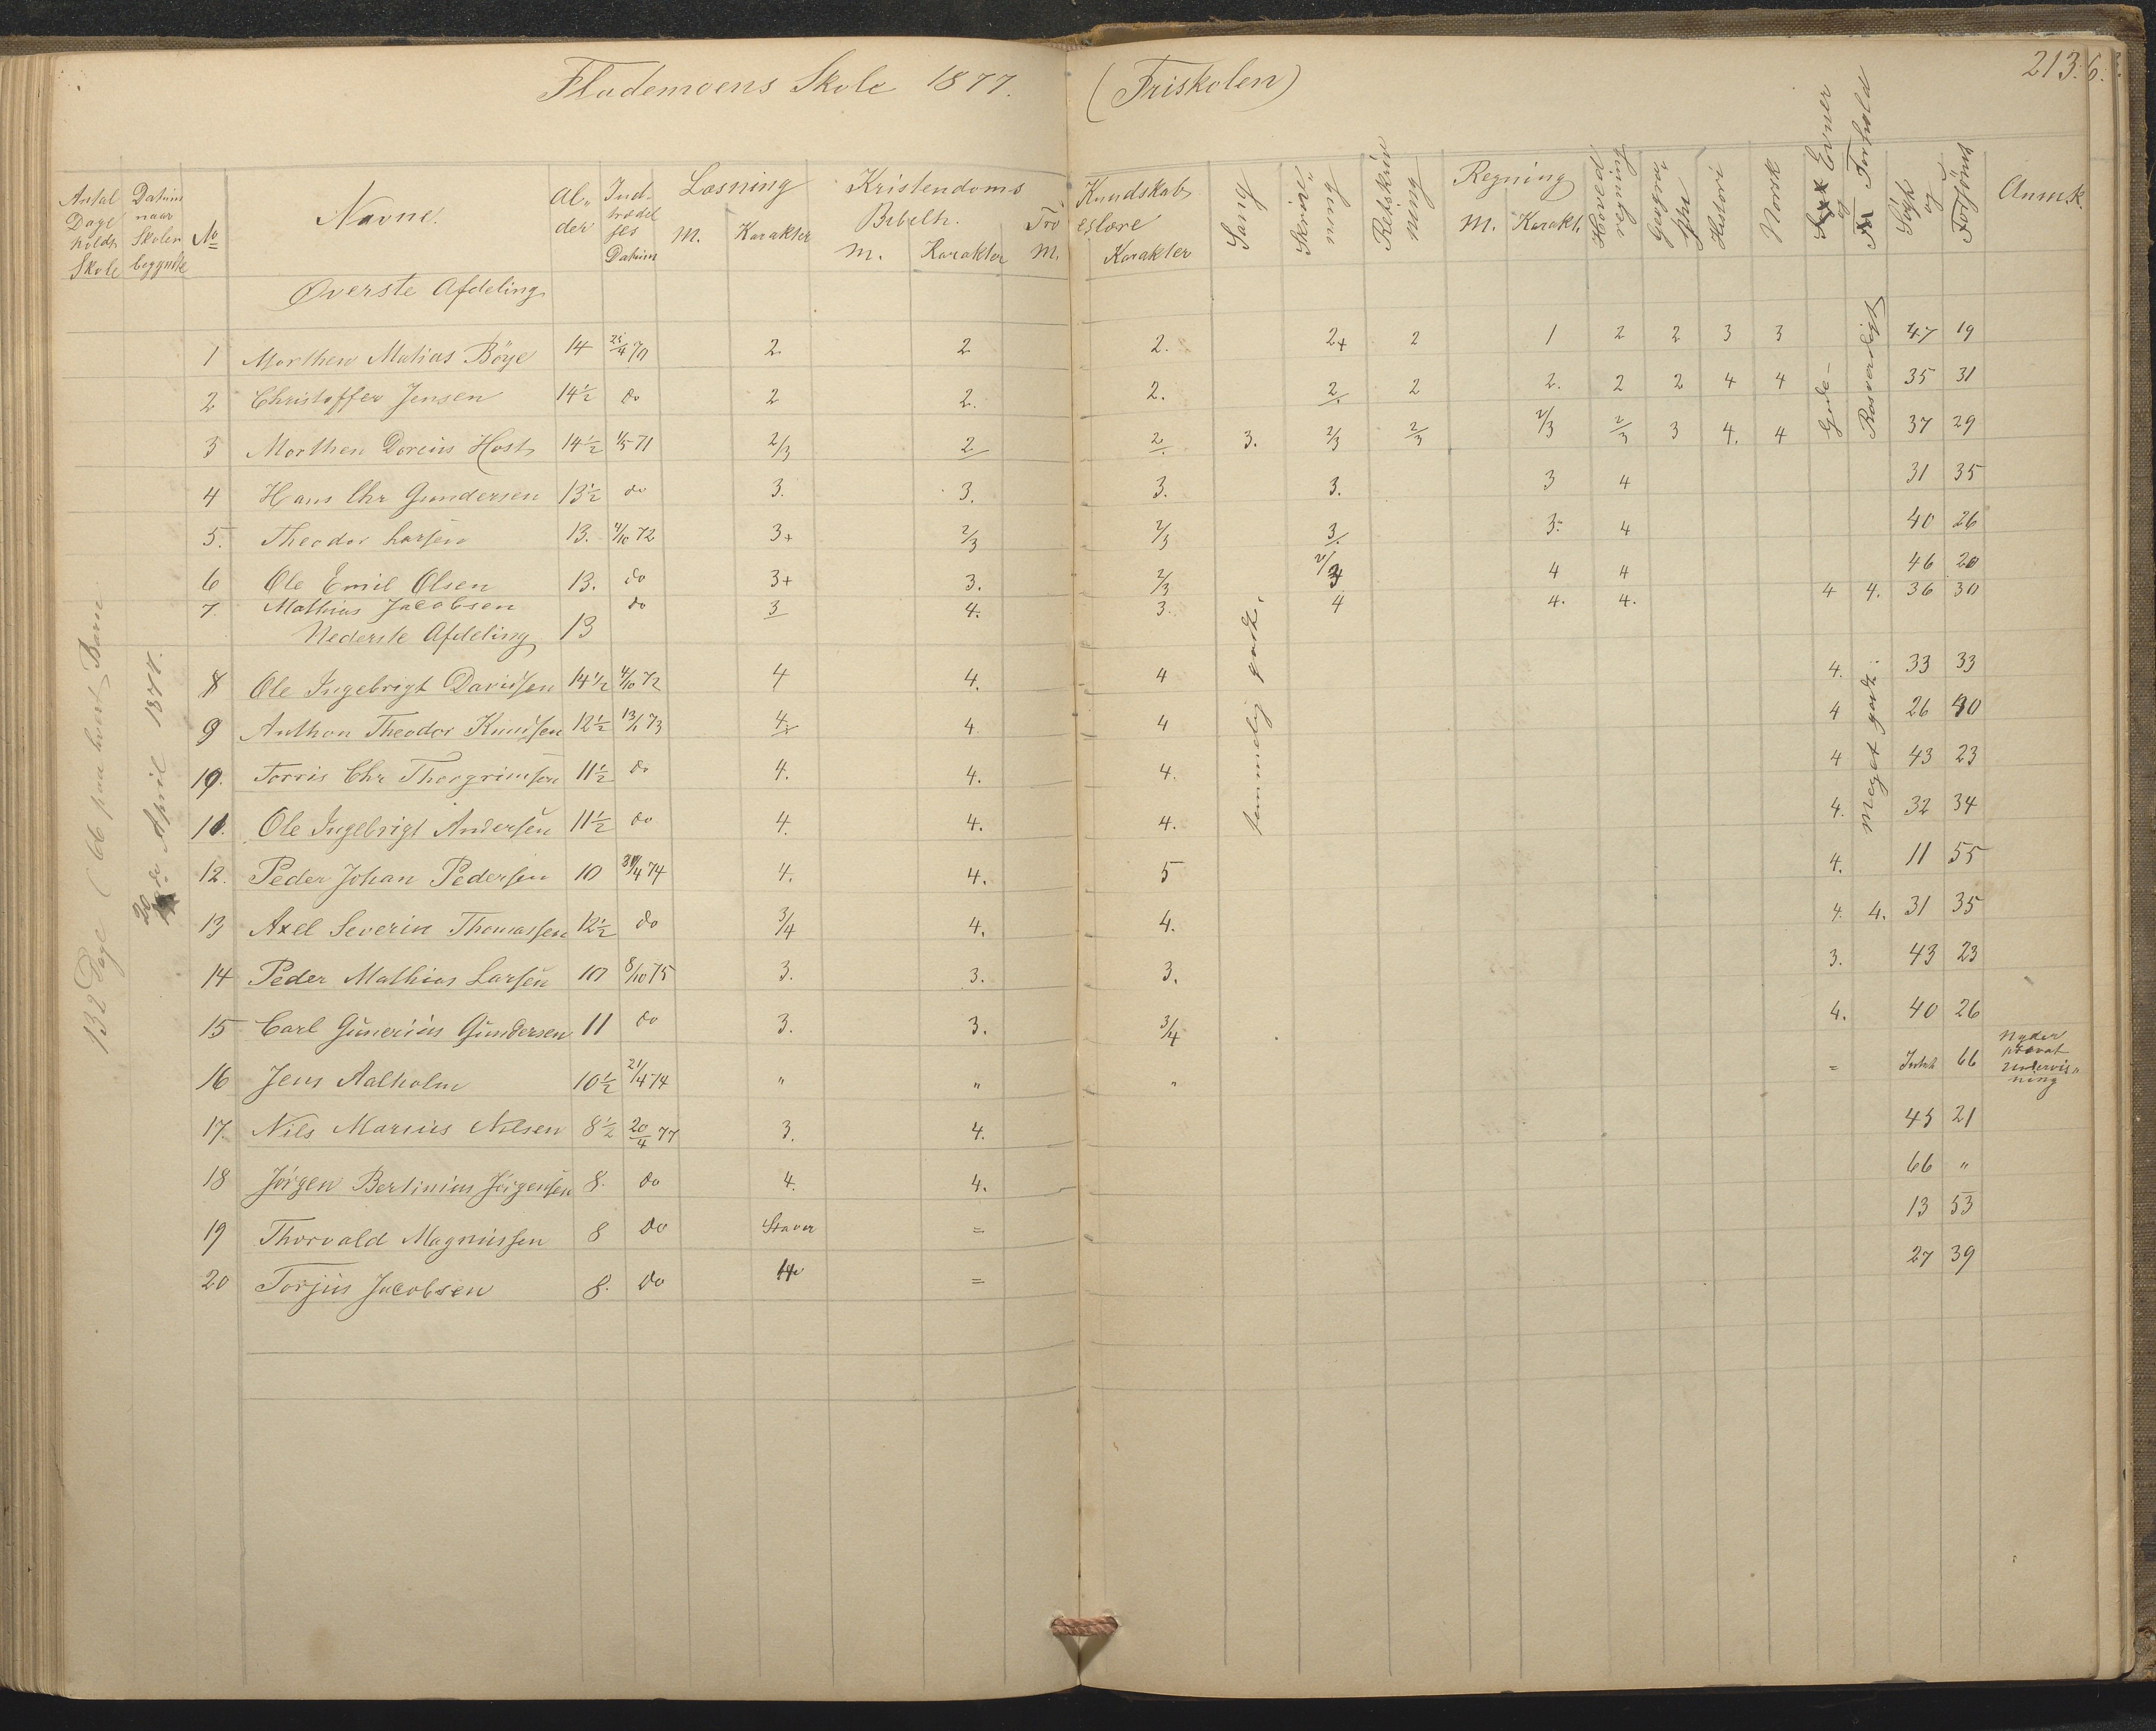 Flademoens Skole 1877. (Friskolen) 213.
Antal Dage holdt Skole | Datum naar Skolen begyndte | No | Navne. | Al„der | Indtrædelses Datum | Læsning M. Karakter | Kristendoms Kundskab Bibelh. M. Karakter | Troeslære M. Karakter | Sang | Skriv„ning | Retskrivning | Regning M. Karakt. | Hovedregning | Geogra„phi | Histori | Norsk | Evner og Forhold | Søgt og Forsømt | Anmk.
132 Dage (66 paa hvert Barn
20de April 1877.
Øverste Afdeling
1 Morthen Matias Böye 14 23/4 70 2. 2 2. 2+ 2 1 2 2 3 3 47 19
2 Christoffer Jensen 14½ do 2 2. 2. 2. 2 2. 2 2 4 4 35 31
3 Morthen Doreius Høst 14½ 1/5 71 2/3 2 2. 3. 2/3 2/3 2/3 2/3 3 4. 4 37 29
Gode –
Rosværdigt
4 Hans Chr Gundersen 13½ do 3. 3. 3. 3. 3 4 31 35
5. Theodor Larsen 13. 4/10 72 3+ 2/3 2/3 3. 3. 4 40 26
6 Ole Emil Olsen 13. do 3+ 3. 2/3 2/3 4 4 46 20
7. Mathias Jacobsen 13 do 3 4. 3. 4 4. 4. 4 4. 36 30
Nederste Afdeling
temmelig godt.
Meget godt.
8 Ole Ingebrigt Davidsen 14½ 4/10 72 4 4. 4 4. 33 33
9 Anthon Theodor Knudsen 12½ 13/1 73 4 4 4 4 26 40
10. Torris Chr Thorgrimsen 11½ do 4. 4. 4. 4 43 23
11. Ole Ingebrigt Andersen 11½ do 4. 4. 4. 4. 32 34
12. Peder Johan Pedersen 10 4 74 4. 4. 5 4. 11 55
13 Axel Severin Thomassen 12½ do 3/4 4. 4. 4. 4. 31 35
14 Peder Mathias Larsen 10 8/10 75 3. 3. 3. 3. 43 23
15 Carl Gunerius Gundersen 11 do 3. 3. 3/4 4. 40 26
16 Jens Aalholm 10½ 21/4 74 „ „ „ = 66 Nyder privat Undervis„ning
17. Nils Marius Nilsen 8½ 20/4 77 3. 4. 45 21
18 Jörgen Bertinius Jörgensen 8. do 4. 4. 66 „
19 Thorvald Magnussen 8 do Staver = 13 53
20 Torjus Jacobsen 8. do = 27 39